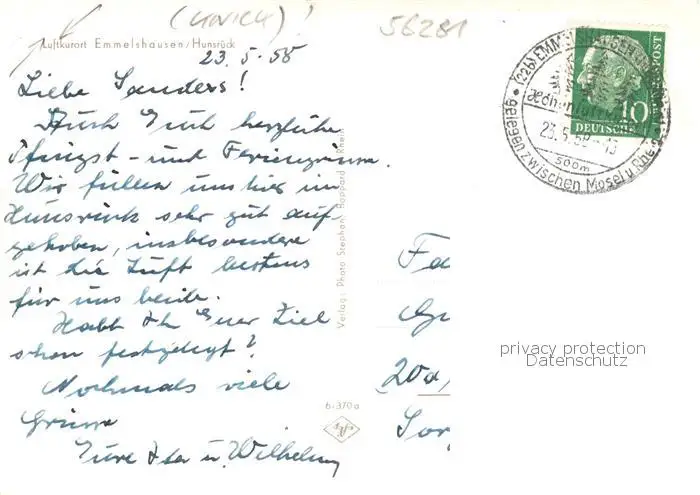 (HUNSRÜCK)!
56281
Luftkurort Emmelshausen/Hunsrück
23. 5. 58
Liebe Sanders!
Auch Euch herzliche
Pfingst- und Feriengrüsse.
Wir fühlen uns hier im
Hunsrück sehr gut auf-
gehoben, insbesondere
ist die Luft bestens
für uns beide.
Habt Ihr Euer Ziel
schon festgelegt?
Nochmals viele
Grüsse
Eure u. Wilhelm
Verlag: Photo Stephan, Boppard a. Rhein
6-370a
Fa
20a,
(22b) EMMELSHAUSEN
23.5.58
500m
gelegen zwischen Mosel u. Rhein
10
DEUTSCHE BUNDESPOST
privacy protection
Datenschutz